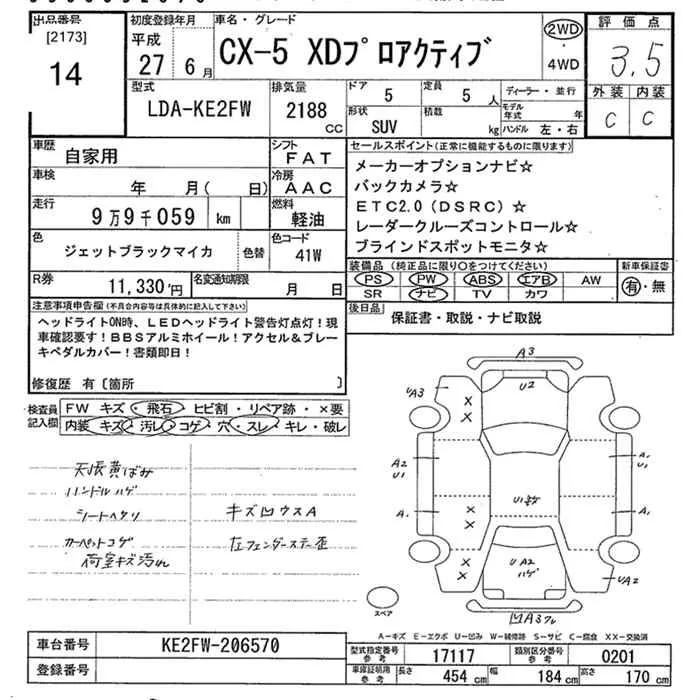 出品番号
[2173]
14
初度登録年月
平成
27 6月
車名・グレード
CX-5 XDプロアクティブ
2WD
・
4WD
評価点
3.5
外装 内装
C C
型式
LDA-KE2FW
排気量
2188
CC
ドア
5
定員
5 人
形状
SUV
積載
kg
ディーラー・並行
モデル年式 年
ハンドル 左・右
車歴
自家用
シフト
FAT
車検
年 月( 日)
冷房
AAC
走行
9万9千059 km
燃料
軽油
色
ジェットブラックマイカ
色替
色コード
41W
R券
11,330円
名変通知期限
月 日
セールスポイント(正常に機能するものに限ります)
メーカーオプションナビ☆
バックカメラ☆
ETC2.0(DSRC)☆
レーダークルーズコントロール☆
ブラインドスポットモニタ☆
装備品 (純正品に限り○をつけてください)
PS PW ABS エアB AW
SR ナビ TV カワ
新車保証書
有・無
後日品
保証書・取説・ナビ取説
注意事項申告欄(不具合内容等は具体的に記入して下さい)
ヘッドライトON時、LEDヘッドライト警告灯点灯!現
車確認要す!BBSアルミホイール!アクセル&ブレー
キペダルカバー!書類即日!
修復歴 有〔箇所 〕
検査員
記入欄
FW キズ・飛石・ヒビ割・リペア跡・×要
内装 キズ・汚レ・コゲ・穴・スレ・キレ・破レ
天張黄ばみ
ハンドルハゲ
シートヘタリ
カーペットコゲ
荷室キズ汚れ
キズ凹ウスA
左フェンダーステー歪
A3
UA3
U2
×
×
A2
U1
A1
U1
U1
A1
×
A1
×
×
×
UA2
ハゲ
UA2
凹A3フレ
スペア
A-キズ E-エクボ U-凹み W-補修跡 S-サビ C-腐食 XX-交換済
車台番号
KE2FW-206570
登録番号
型式指定番号
参考
17117
類別区分番号
参考
0201
車庫証明用
参考
長さ
454 cm
幅
184 cm
高さ
170 cm